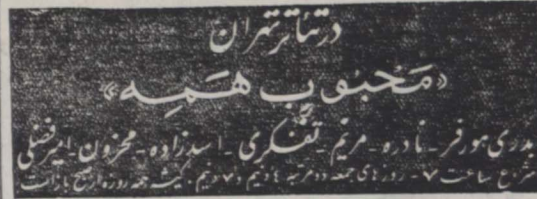 در تئاتر تهران
«محبوب همه»
بدری هورفر - نادره - مریم - تفکری - اسدزاده - محزون - امیرفضلی
شروع ساعت ۷ - روزهای جمعه دو مرتبه ۴ و نیم و ۷ و نیم - گیشه همه روزه از صبح باز است